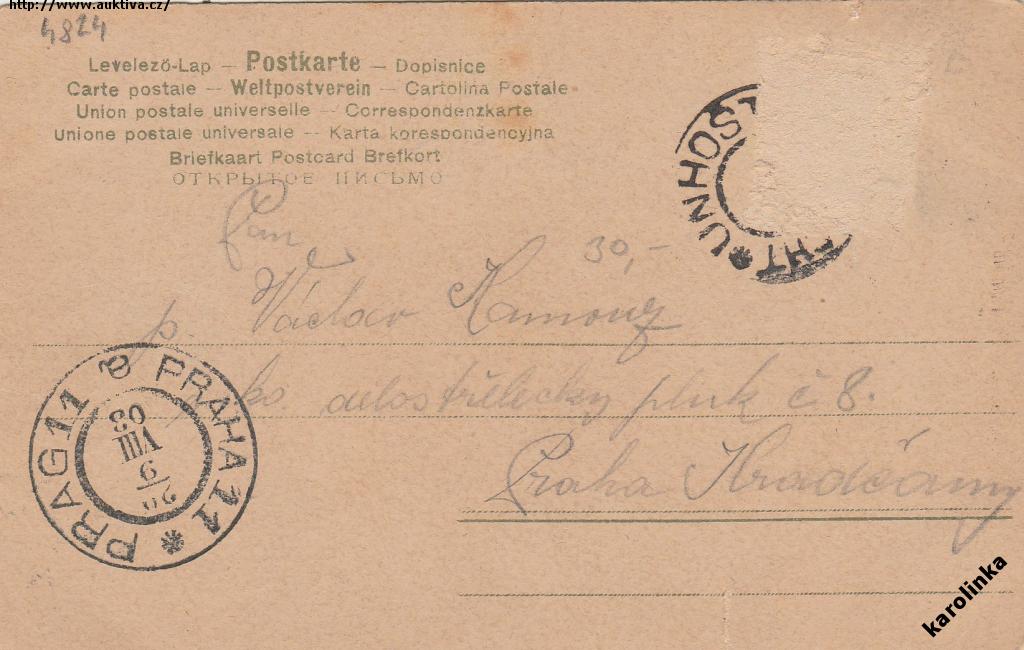 http://www.auktiva.cz/
4824
Levelező-Lap – Postkarte – Dopisnice
Carte postale – Weltpostverein – Cartolina Postale
Union postale universelle – Correspondenzkarte
Unione postale universale – Karta korespondencyjna
Briefkaart Postcard Brefkort
ОТКРЫТОЕ ПИСЬМО
UNHOŠT
HT
30,-
p. Václav
PRAG 11 PRAHA 11
9
VIII
03
dělostřelecký pluk č 8.
Praha Hradčany
karolinka